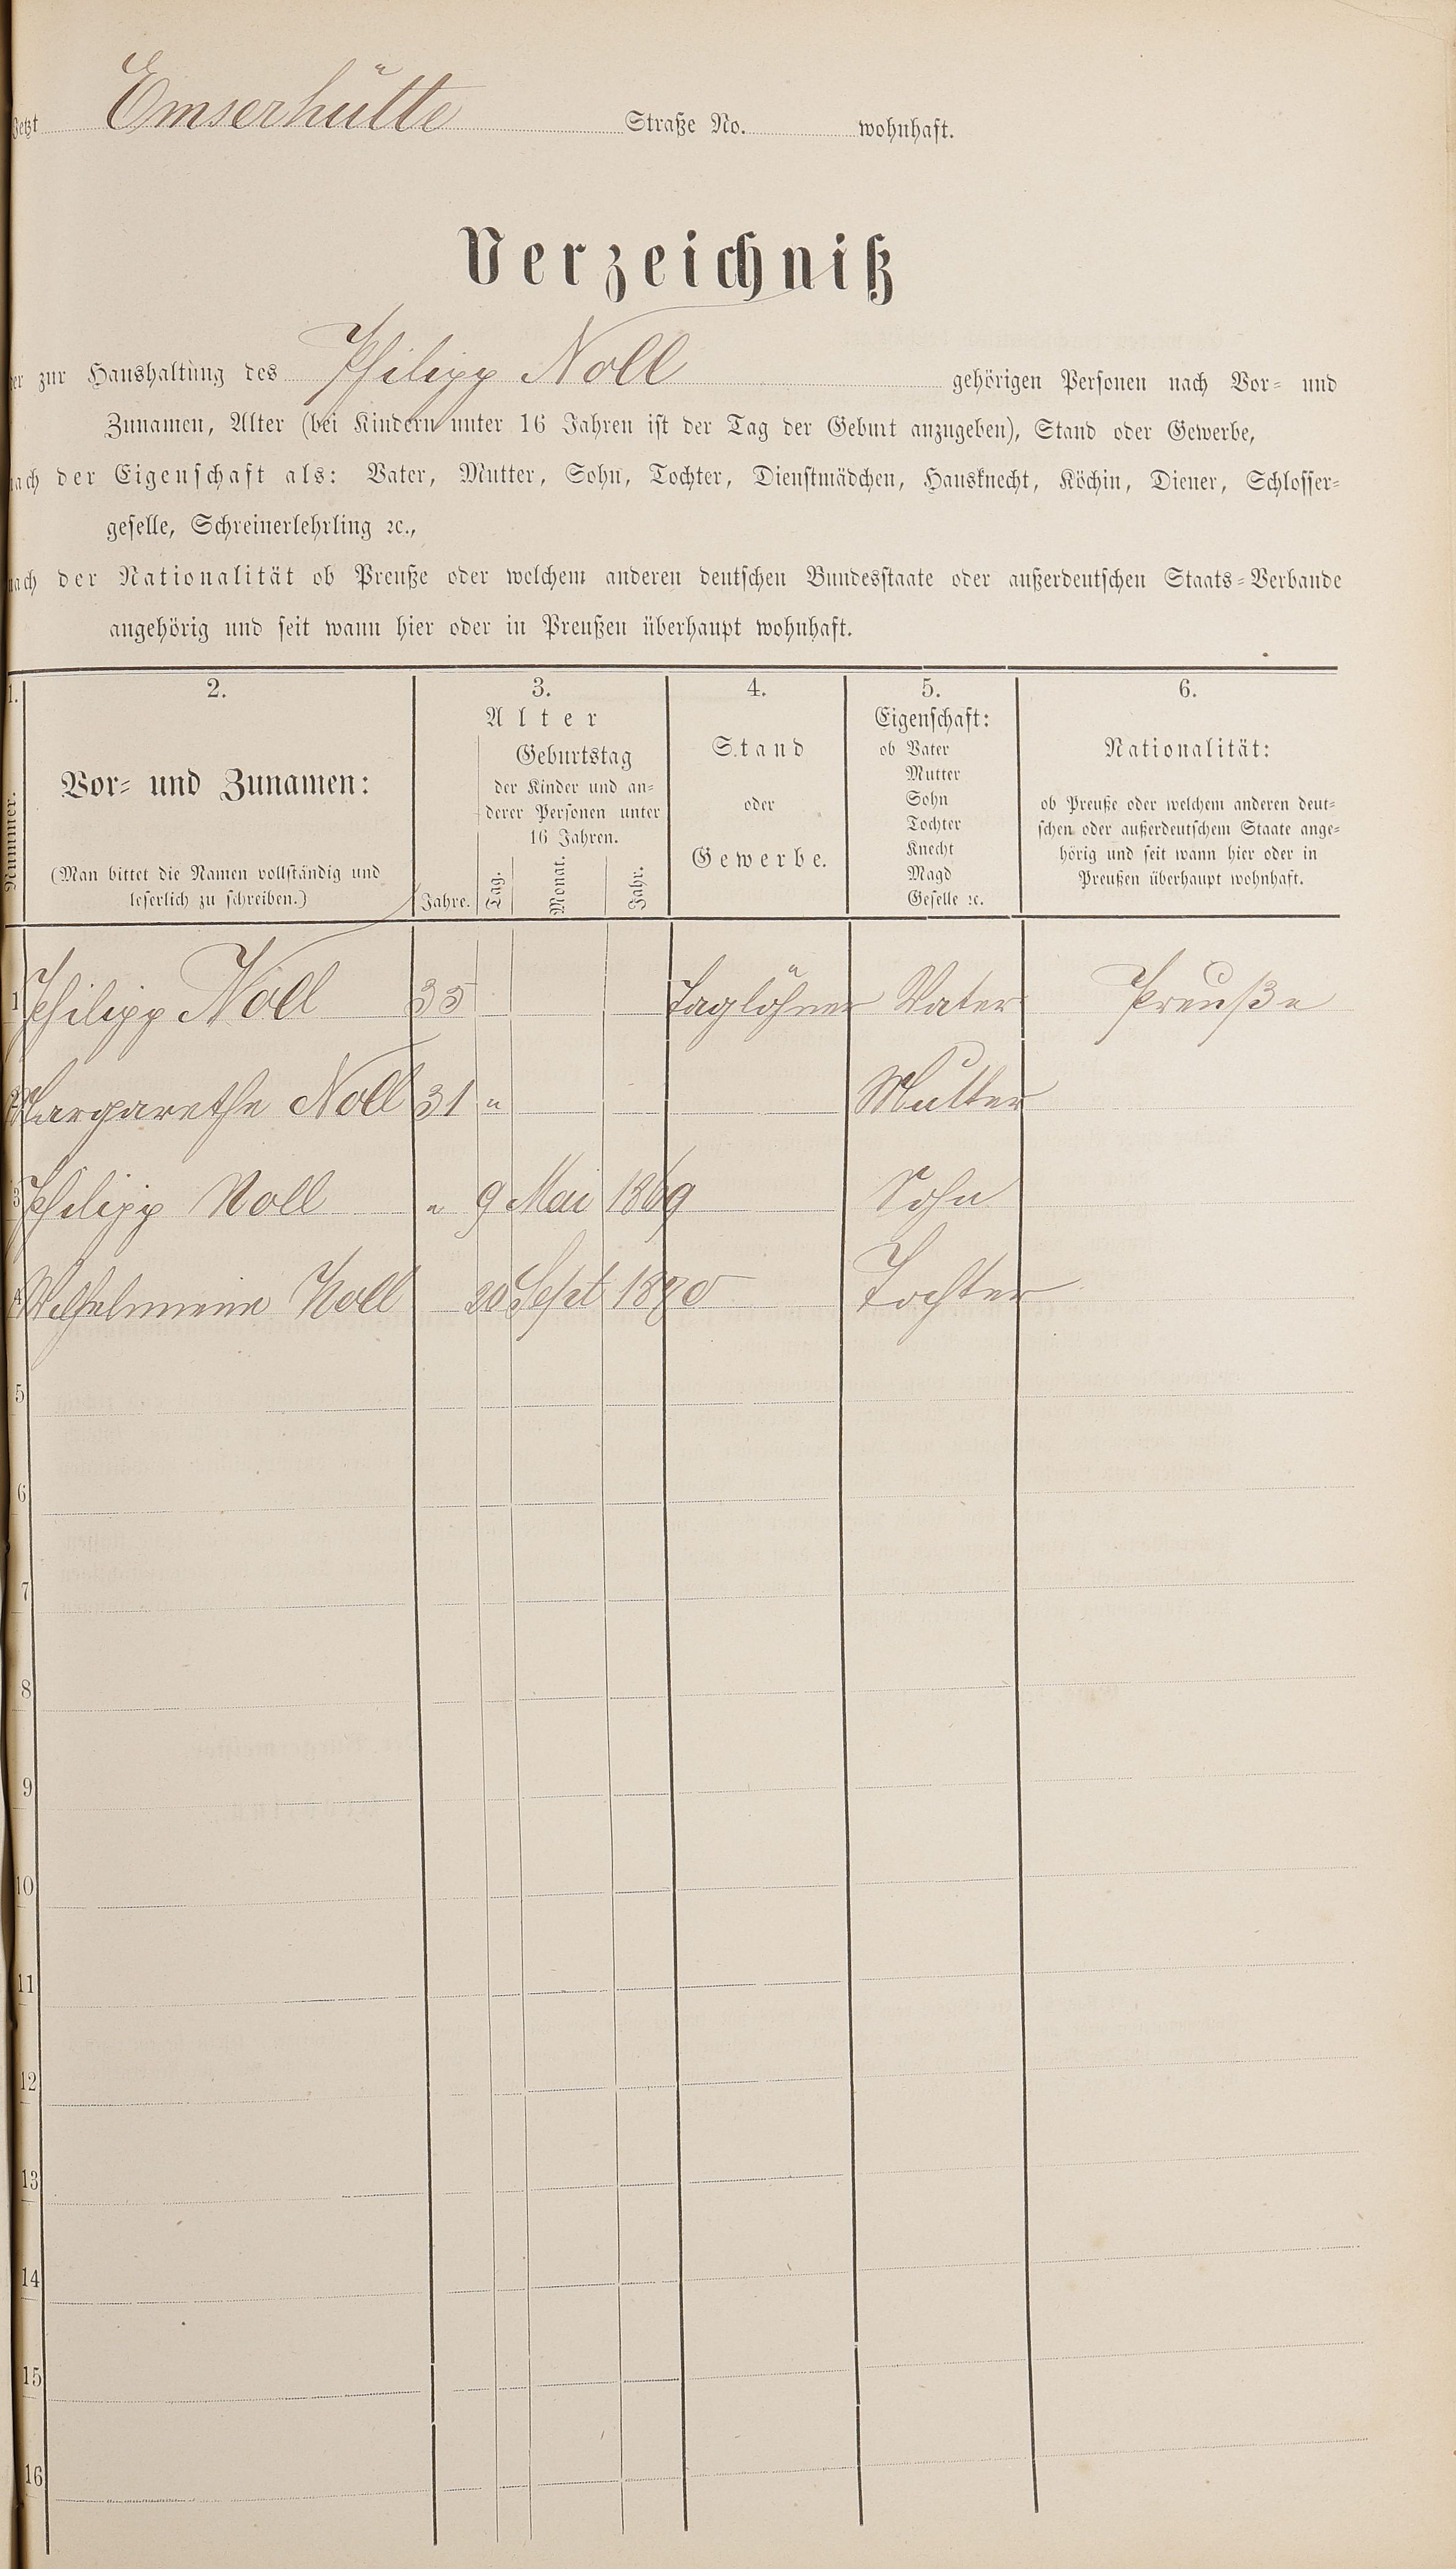 Jetzt Emserhütte Straße No. wohnhaft.
Verzeichniß
der zur Haushaltung des Philipp Noll gehörigen Personen nach Vor- und
Zunamen, Alter (bei Kindern unter 16 Jahren ist der Tag der Geburt anzugeben), Stand oder Gewerbe,
nach der Eigenschaft als: Vater, Mutter, Sohn, Tochter, Dienstmädchen, Hausknecht, Köchin, Diener, Schlosser-
geselle, Schreinerlehrling ꝛc.,
nach der Nationalität ob Preuße oder welchem anderen deutschen Bundesstaate oder außerdeutschen Staats-Verbande
angehörig und seit wann hier oder in Preußen überhaupt wohnhaft.
1. 2. 3. 4. 5. 6.
Nummer.
Vor- und Zunamen:
(Man bittet die Namen vollständig und
leserlich zu schreiben.)
Alter
Jahre.
Geburtstag
der Kinder und an-
derer Personen unter
16 Jahren.
Tag. Monat. Jahr.
Stand
oder
Gewerbe.
Eigenschaft:
ob Vater
Mutter
Sohn
Tochter
Knecht
Magd
Geselle ꝛc.
Nationalität:
ob Preuße oder welchem anderen deut-
schen oder außerdeutschem Staate ange-
hörig und seit wann hier oder in
Preußen überhaupt wohnhaft.
1 Philipp Noll 35 Taglöhner Vater Preuße
2 Margarethe Noll 31 " Mutter
3 Philipp Noll " 9 Mai 1869 Sohn
4 Wilhelmine Noll 20 Sept 1870 Tochter
5
6
7
8
9
10
11
12
13
14
15
16